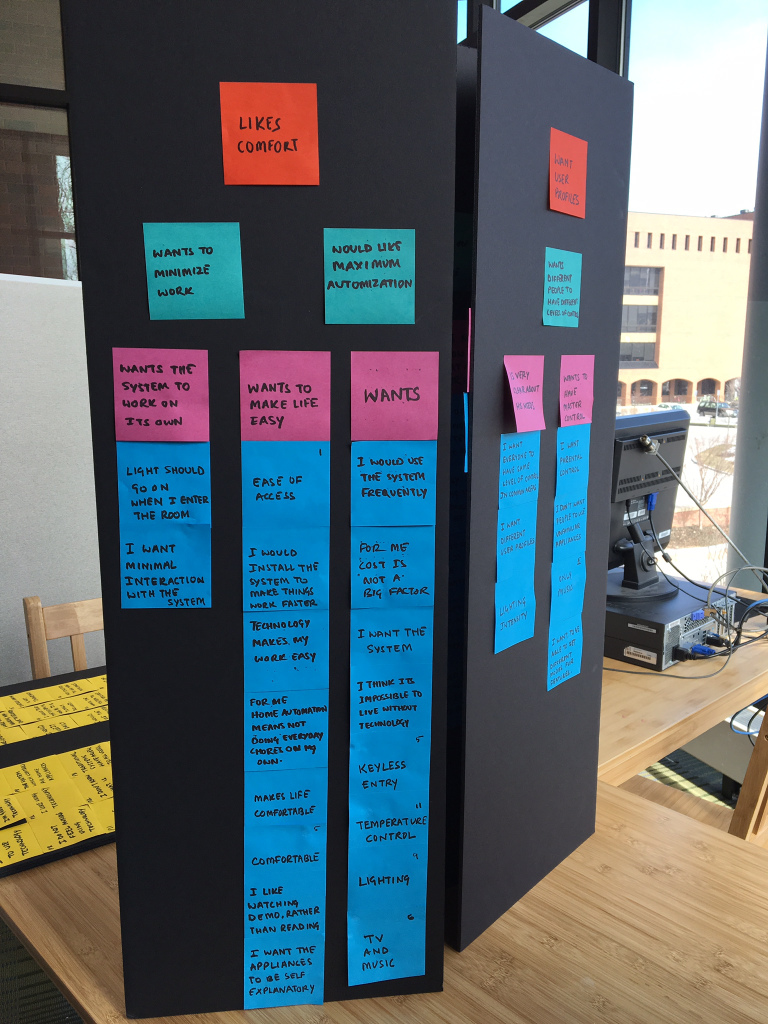 LIKES
COMFORT
WANTS TO
MINIMIZE
WORK
WOULD LIKE
MAXIMUM
AUTOMIZATION
WANTS THE
SYSTEM TO
WORK ON
ITS OWN
LIGHT SHOULD
GO ON
WHEN I ENTER
THE ROOM
I WANT
MINIMAL
INTERACTION
WITH THE SYSTEM
WANTS TO
MAKE LIFE
EASY
1
EASE OF
ACCESS
I WOULD
INSTALL THE
SYSTEM TO
MAKE THINGS
WORK FASTER
TECHNOLOGY
MAKES MY
WORK EASY
FOR ME
HOME AUTOMATION
MEANS NOT
DOING EVERYDAY
CHORES ON MY
OWN.
MAKES LIFE
COMFORTABLE
COMFORTABLE
I LIKE
WATCHING
DEMO, RATHER
THAN READING
I WANT THE
APPLIANCES
TO BE SELF
EXPLANATORY
WANTS
I WOULD USE
THE SYSTEM
FREQUENTLY
FOR ME
COST IS
NOT A
BIG FACTOR
I WANT THE
SYSTEM
I THINK ITS
IMPOSSIBLE TO
LIVE WITHOUT
TECHNOLOGY
5
KEYLESS
ENTRY
11
TEMPERATURE
CONTROL
9
LIGHTING
6
TV
AND
MUSIC
WANT
USER
PROFILES
WANTS
DIFFERENT
PEOPLE TO
HAVE DIFFERENT
LEVELS OF CONTROL
VERY
ABOUT
I WANT
EVERYONE TO
HAVE SAME
LEVEL OF CONTROL
IN COMMON AREAS
I WANT
DIFFERENT
USER PROFILES
LIGHTING
INTENSITY
WANTS TO
HAVE
MASTER
CONTROL
I WANT
PARENTAL
CONTROL
I DON'T WANT
PEOPLE TO USE
APPLIANCES
ONLY
MUSIC
I WANT TO BE
ABLE TO SET
DIFFERENT